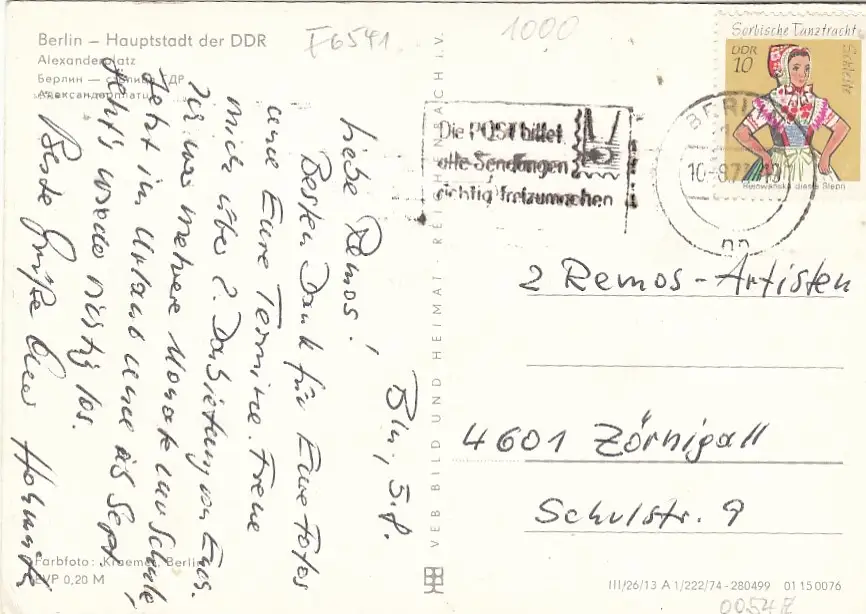 Berlin – Hauptstadt der DDR
Alexanderplatz
Берлин — столица ГДР
Александерплатц
F6541
1000
Sorbische Tanztracht
DDR
10
Schleife
BERLIN
Die POST bittet
alle Sendungen
richtig freizumachen
Bln., 5.8.
Liebe Remos!
Besten Dank für Eure Fotos
und Eure Termine. Freue
mich über 2. Darbietung von Euch.
mehrere Monate
Jetzt in Urlaub und ab Sept.
geht's wieder richtig los.
Beste Grüße Euer
VEB BILD UND HEIMAT · REICHENBACH i.V.
2 Remos-Artisten
4601 Zörnigall
Schulstr. 9
Farbfoto: Kraemer, Berlin
EVP 0,20 M
III/26/13 A 1/222/74-280499 01 15 0076